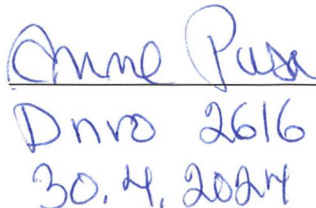 Anne Pusa
Dnro 2616
30.4.2024